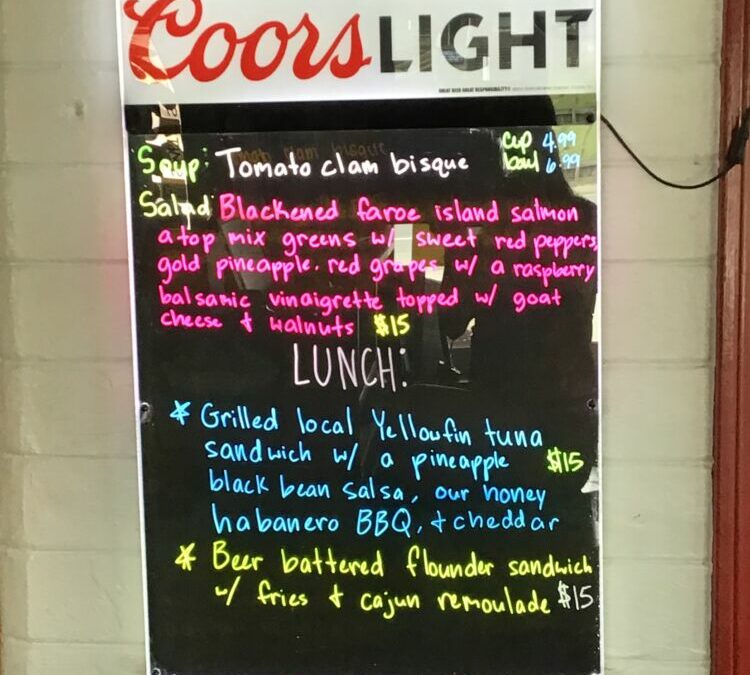 Coors LIGHT
GREAT BEER GREAT RESPONSIBILITY
Soup: Tomato clam bisque cup 4.99
bowl 6.99
Salad: Blackened faroe island salmon
atop mix greens w/ sweet red peppers,
gold pineapple. red grapes w/ a raspberry
balsamic vinaigrette topped w/ goat
cheese & walnuts $15
LUNCH:
* Grilled local Yellowfin tuna
sandwich w/ a pineapple $15
black bean salsa, our honey
habanero BBQ, & cheddar
* Beer battered flounder sandwich
w/ fries & cajun remoulade $15